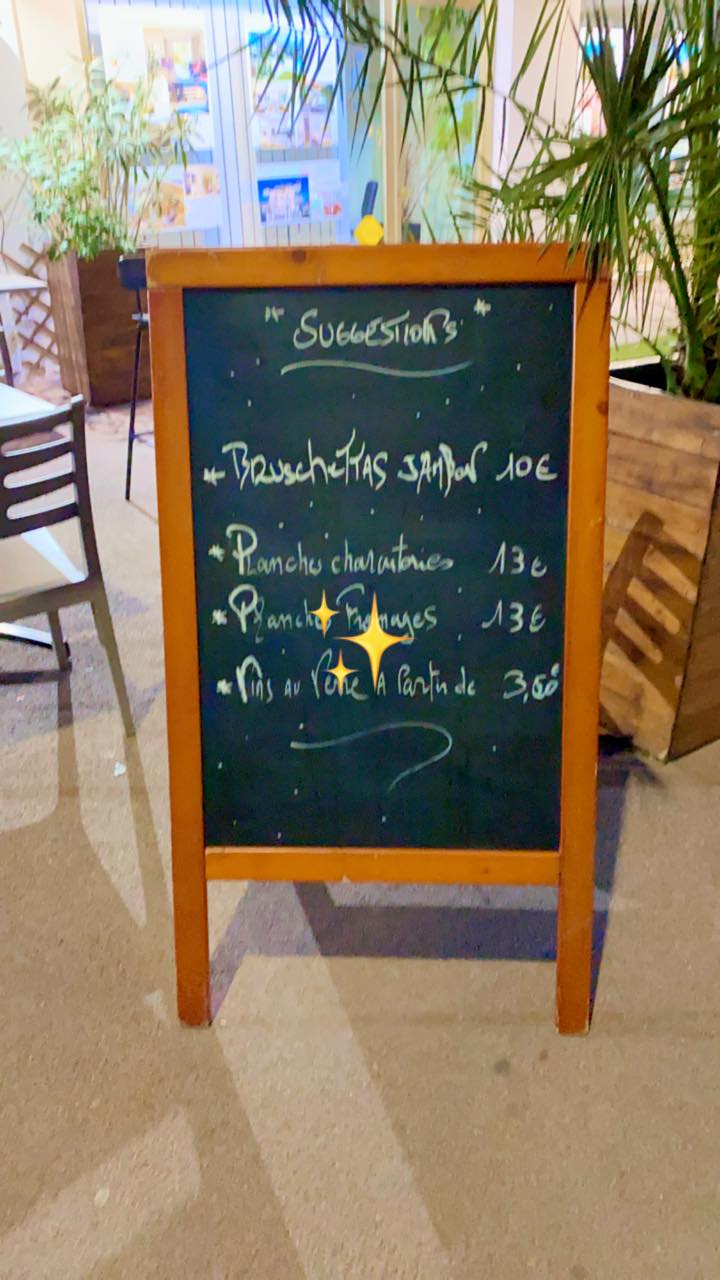 * SUGGESTIONS *
* BRUSCHETTAS JAMBON 10€
* Planche charcuteries 13€
* Planche Fromages 13€
* Vins au Verre A Partir de 3,50€